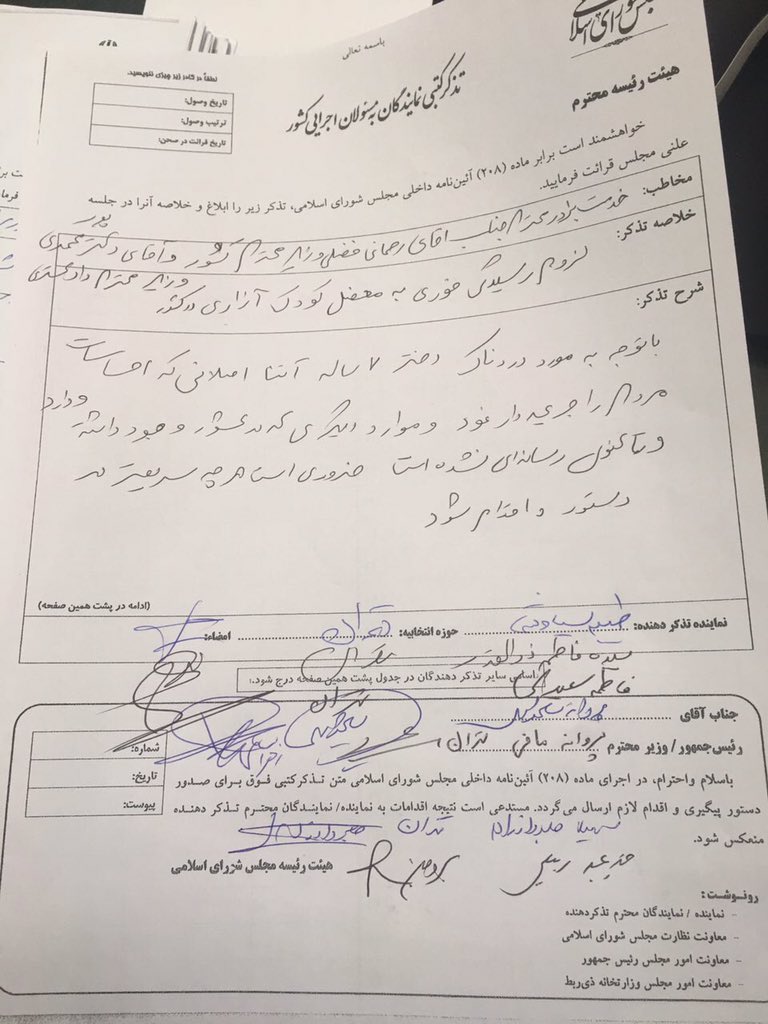 شورای اسلامی
باسمه تعالی
تذکر کتبی نمایندگان به مسئولان اجرایی کشور
لطفاً در کادر زیر چیزی ننویسید.
تاریخ وصول:
ترتیب وصول:
تاریخ قرائت در صحن:
هیئت رئیسه محترم
خواهشمند است برابر ماده (۲۰۸) آئین‌نامه داخلی مجلس شورای اسلامی، تذکر زیر را ابلاغ و خلاصه آنرا در جلسه
علنی مجلس قرائت فرمایید.
مخاطب: خدمت برادر محترم جناب آقای رحمانی فضلی وزیر محترم کشور و آقای دکتر محمدی پور
وزیر محترم دادگستری
خلاصه تذکر: لزوم رسیدگی فوری به معضل کودک آزاری در کشور
شرح تذکر:
باتوجه به مورد دردناک دختر ۷ ساله آتنا اصلانی که احساسات
مردم را جریحه دار نمود و موارد دیگری که در کشور وجود داشته و دارد
و تاکنون رسانه‌ای نشده است ضروری است هر چه سریعتر
دستور و اقدام شود
(ادامه در پشت همین صفحه)
نماینده تذکر دهنده: طیبه سیاوشی حوزه انتخابیه: تهران امضاء:
سیده فاطمه ذوالقدر تهران
اسامی سایر تذکر دهندگان در جدول پشت همین صفحه درج شود.
فاطمه سعیدی تهران
جناب آقای پروانه سلحشوری
رئیس‌جمهور / وزیر محترم پروانه مافی تهران
شماره:
تاریخ:
پیوست:
باسلام واحترام، در اجرای ماده (۲۰۸) آئین‌نامه داخلی مجلس شورای اسلامی متن تذکر کتبی فوق برای صدور
دستور پیگیری و اقدام لازم ارسال می‌گردد. مستدعی است نتیجه اقدامات به نماینده/ نمایندگان محترم تذکر دهنده
منعکس شود.
سهیلا جلودارزاده تهران
خدیجه ربیعی بروجن
هیئت رئیسه مجلس شورای اسلامی
رونوشت:
- نماینده / نمایندگان محترم تذکردهنده
- معاونت نظارت مجلس شورای اسلامی
- معاونت امور مجلس رئیس جمهور
- معاونت امور مجلس وزارتخانه ذی‌ربط